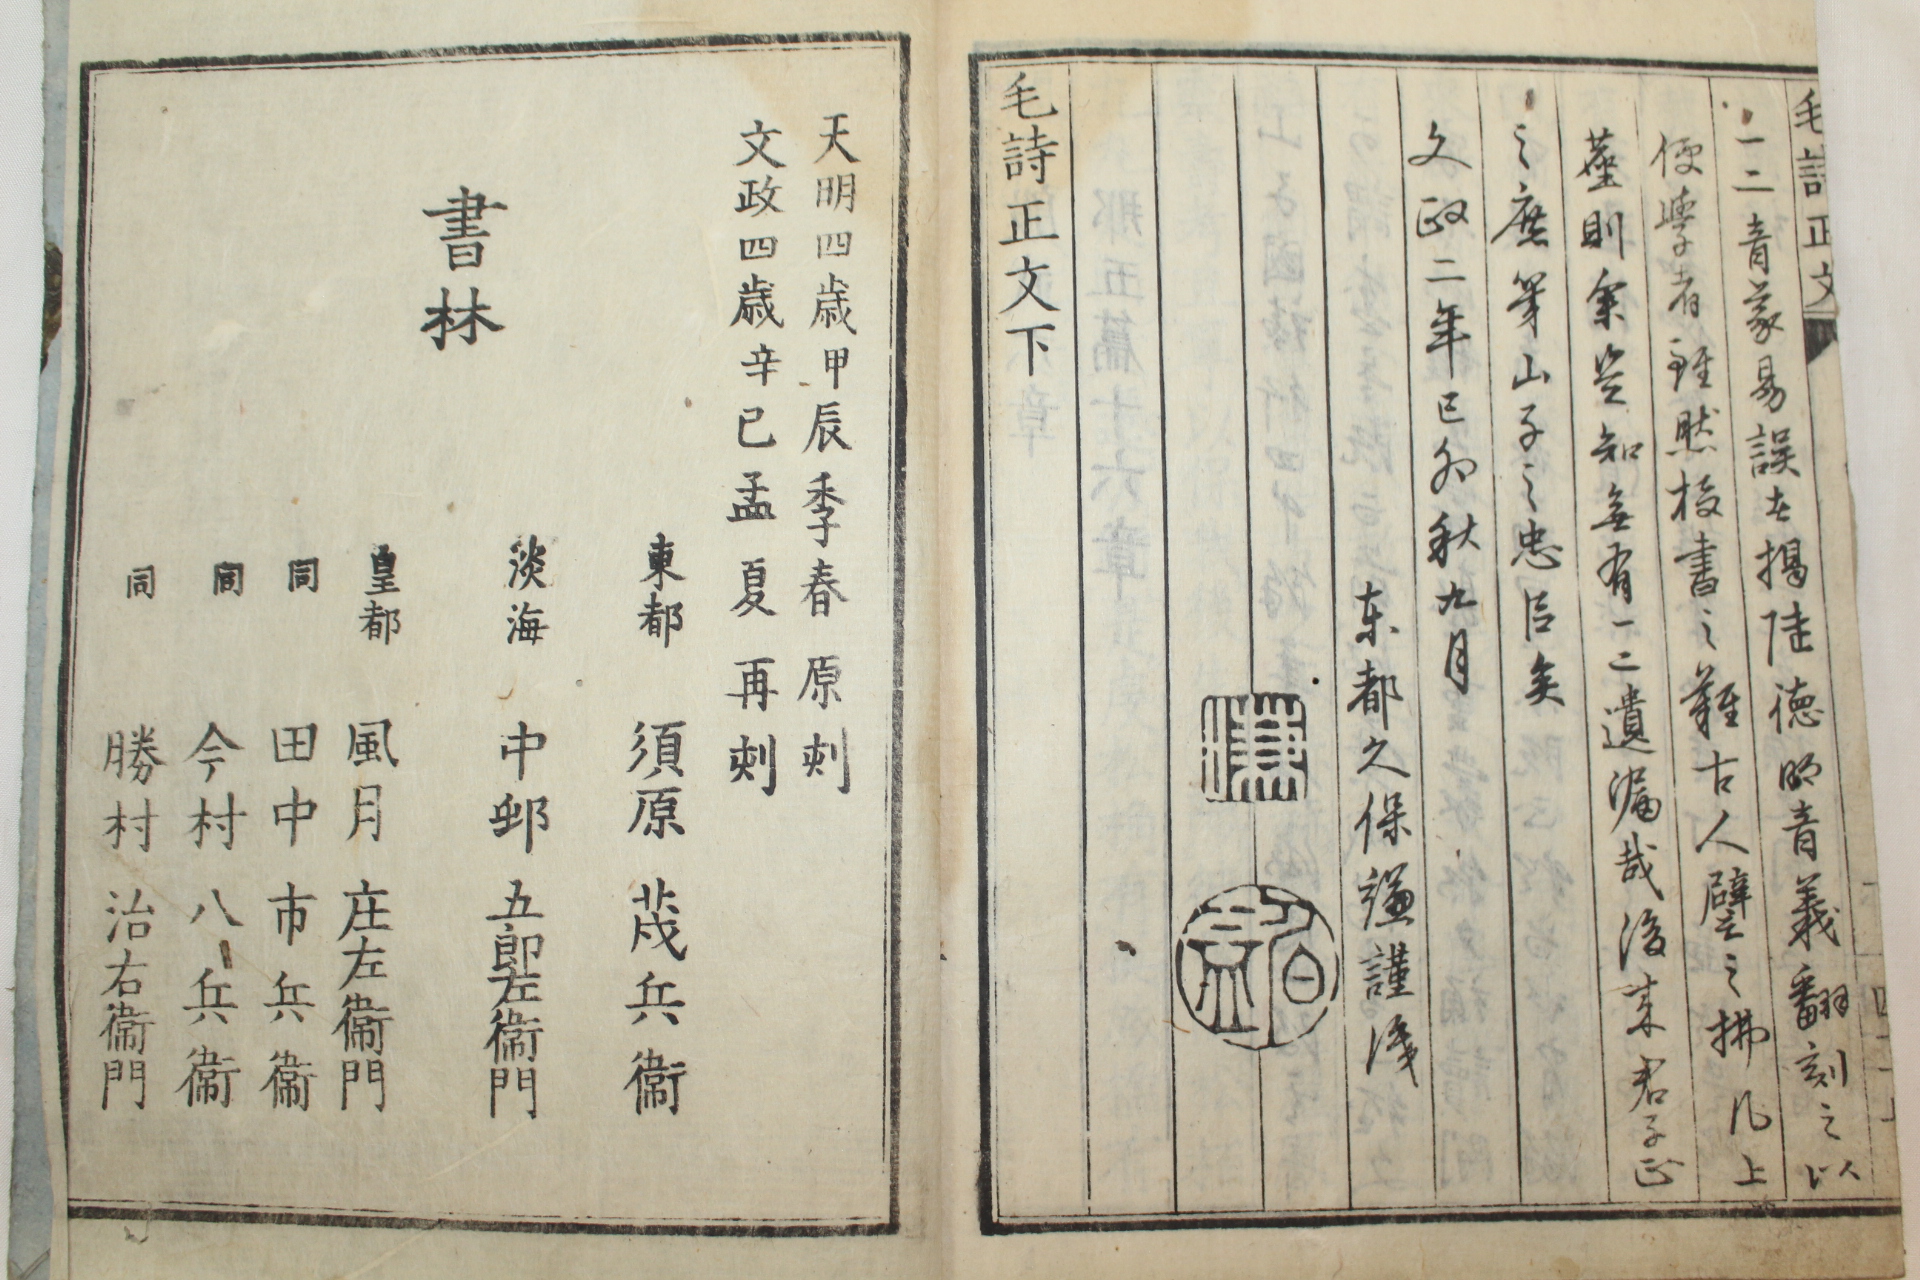 毛詩正文
一二音篆易誤者揭陸德明音義翻刻之以
便學者雖然校書之難古人譬之拂几上
塵則余豈知無有一二遺漏哉後来君子正
之庶幾山子之忠臣矣
文政二年己卯秋九月
東都久保謙謹識
毛詩正文下
天明四歳甲辰季春原刻
文政四歳辛巳孟夏再刻
東都 須原茂兵衞
淡海 中邨五郎左衞門
書林
皇都 風月庄左衞門
同 田中市兵衞
同 今村八兵衞
同 勝村治右衞門